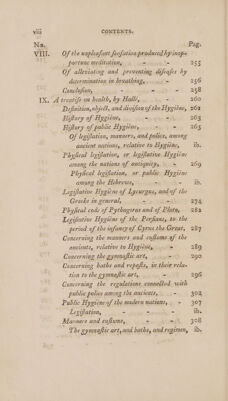 viii CONTENTS.
No. Pag.
VIII. Of the unpleasant sensation produced by inop-
portune meditation, - - 255
Of alleviating and preventing diseases by
determination in breathing, - 256
Conclusion, - - - 258
IX. A treatise on health, by Hallé, - - 260
Definition, object, and division of the Hygiène, 261
History of Hygiène, - - - 263
History of public Hygiène, - - 265
Of legislation, manners, and police, among
ancient nations, relative to Hygiène, ib.
Physical legislation, or legislative Hygiène
among the nations of antiquity, - 269
Physical legislation, or public Hygiène
among the Hebrews, - - ib.
Legislative Hygiène of Lycurgus, and of the
Greeks in general, - - - 274
Physical code of Pythagoras and of Plato, 282
Legislative Hygiène of the Persians, to the
period of the infancy of Cyrus the Great, 287
Concerning the manners and customs of the
ancients, relative to Hygiène, - 289
Concerning the gymnastic art, - - 290
Concerning baths and repasts, in their rela-
tion to the gymnastic art, - - 296
Concerning the regulations connected with
public police among the ancients, - 302
Public Hygiène of the modern nations, - 307
Legislation, - - - ib.
Manners and customs, - - 308
The gymnastic art, and baths, and regimen, ib.